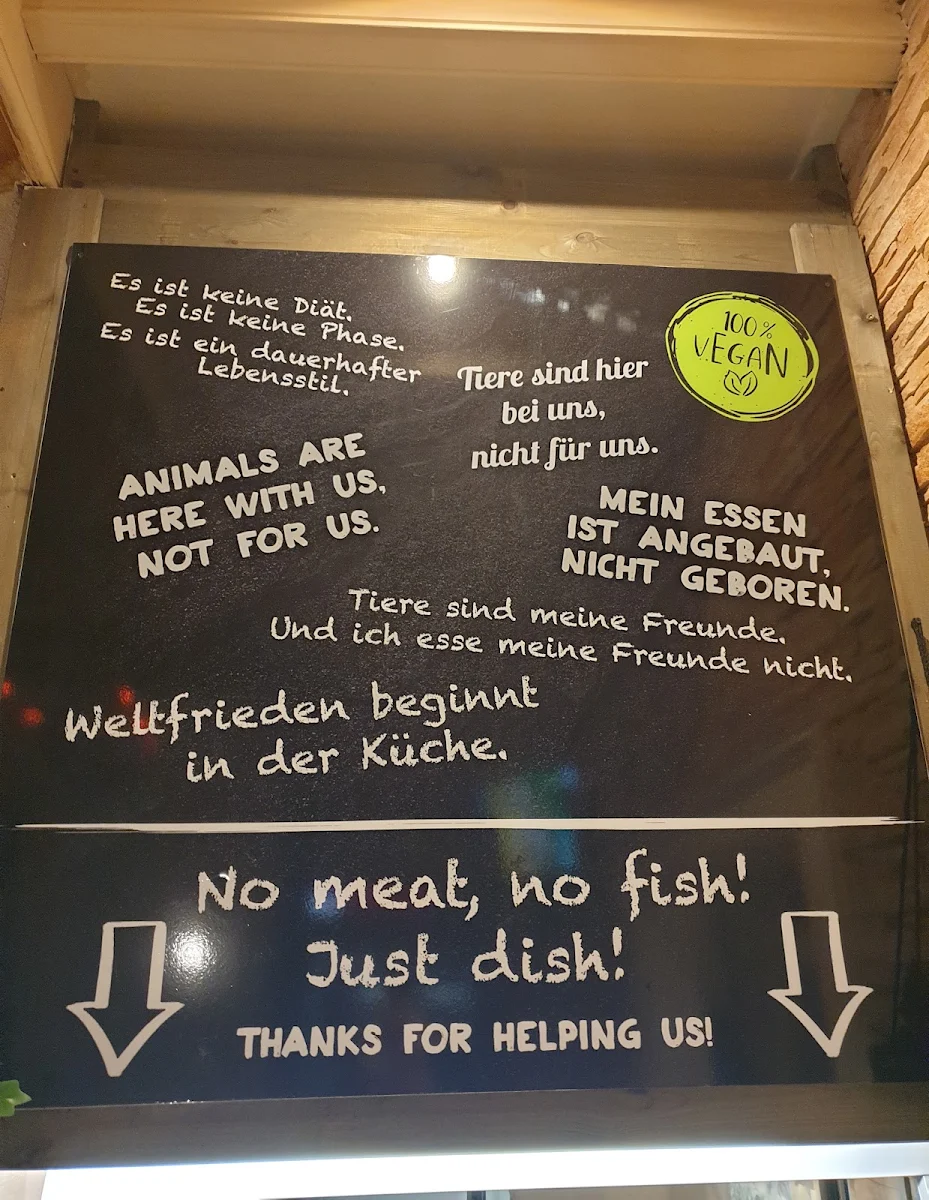 Es ist keine Diät.
Es ist keine Phase.
Es ist ein dauerhafter
Lebensstil.
100%
VEGAN
Tiere sind hier
bei uns,
nicht für uns.
ANIMALS ARE
HERE WITH US,
NOT FOR US.
MEIN ESSEN
IST ANGEBAUT,
NICHT GEBOREN.
Tiere sind meine Freunde.
Und ich esse meine Freunde nicht.
Weltfrieden beginnt
in der Küche.
No meat, no fish!
Just dish!
THANKS FOR HELPING US!